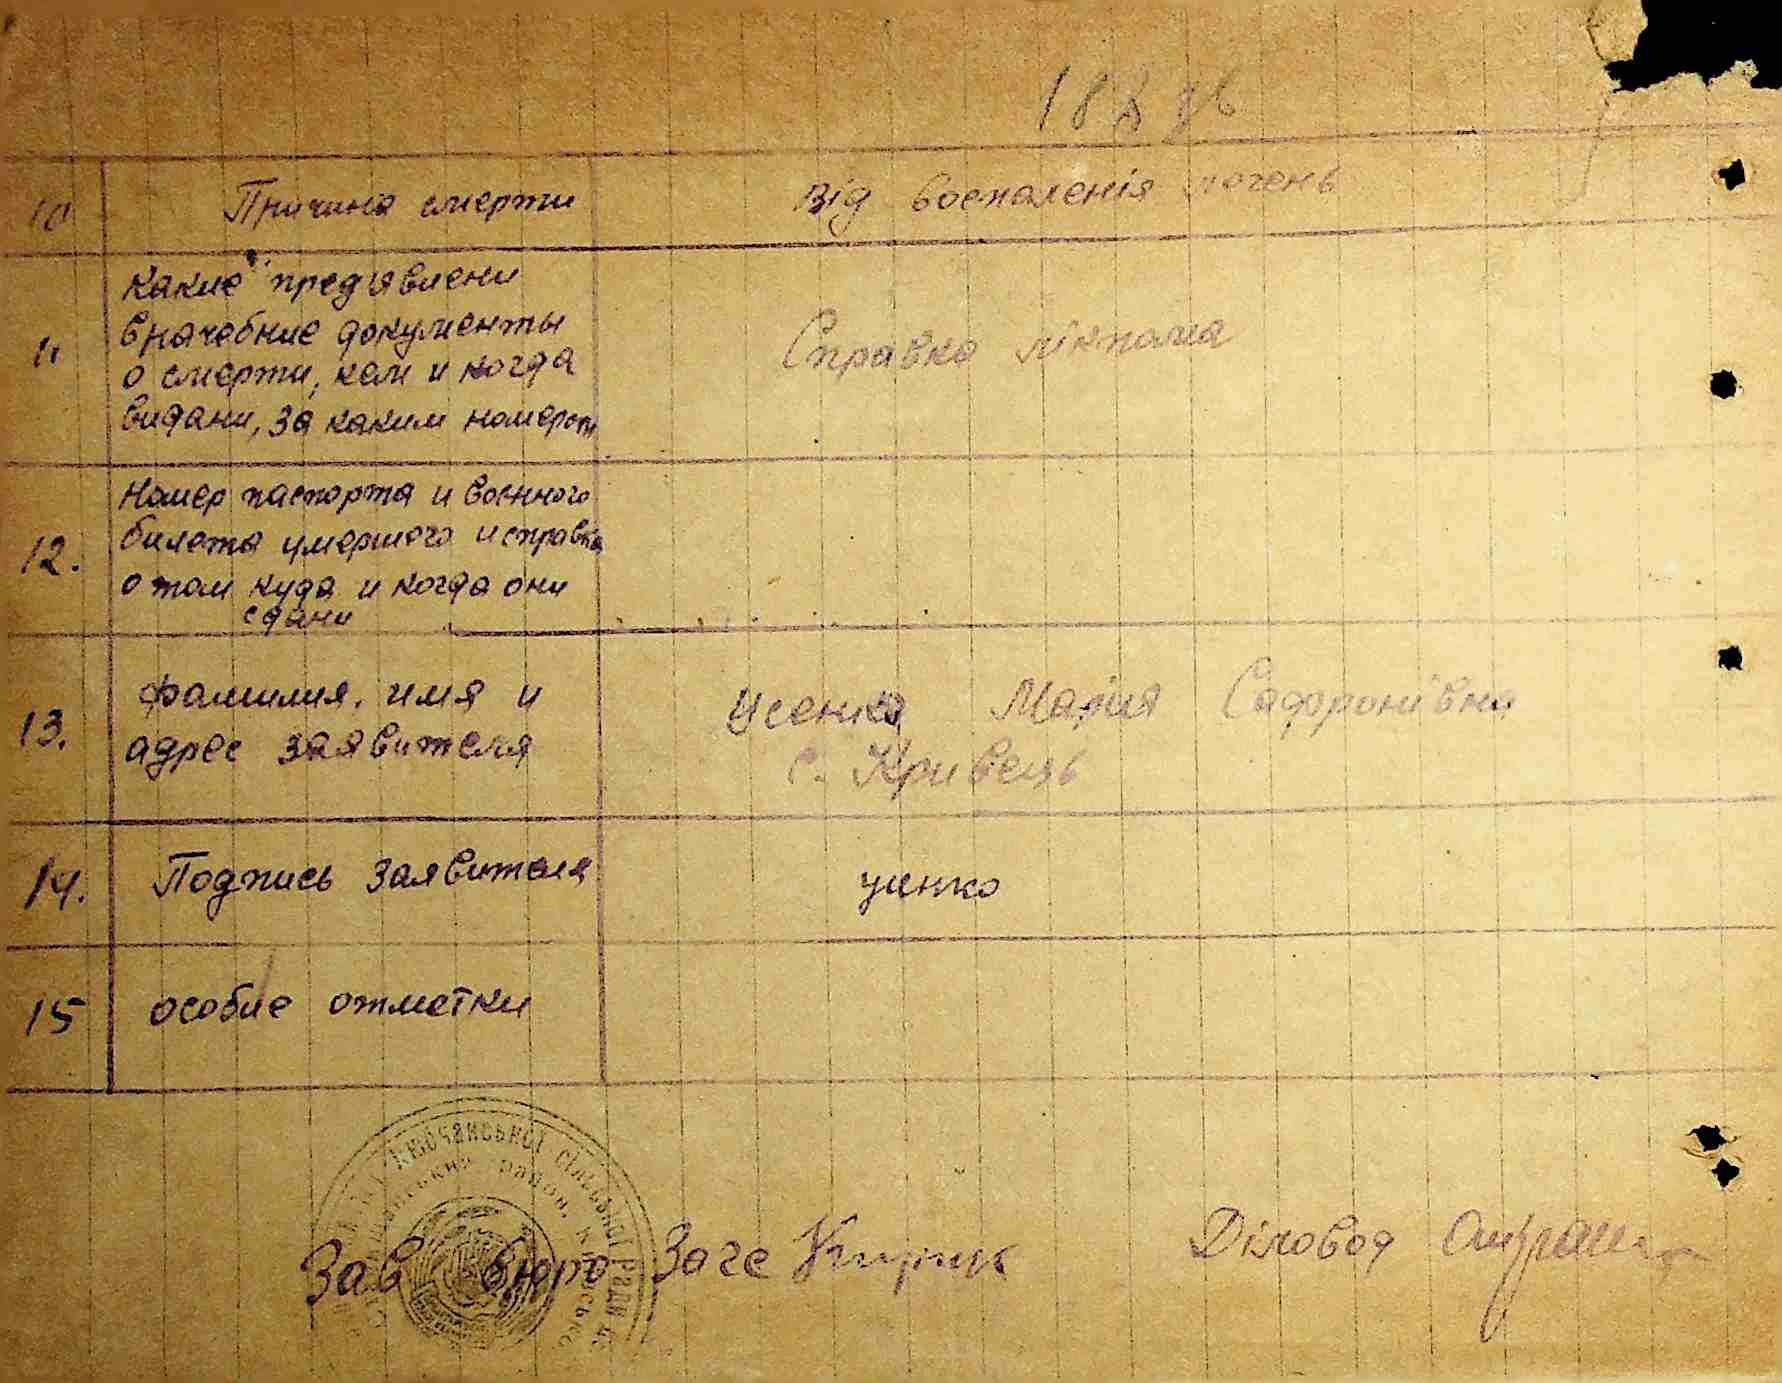 10 Причина смерти від воспаленія печень
Какие предявлени
врачебние документы
11 о смерти, кем и когда Справка лікпома
видани, за каким номером
Номер паспорта и военного
12. билета умершого и справка
о том куда и когда они
сдани
13. фамилия, имя и Усенко Марія Сафронівна
адрес заявителя с. Кривець
14. Подпись заявителя усенко
15 особие отметки
Ключанської сільської Ради
район,
Зав бюро Загс Діловод